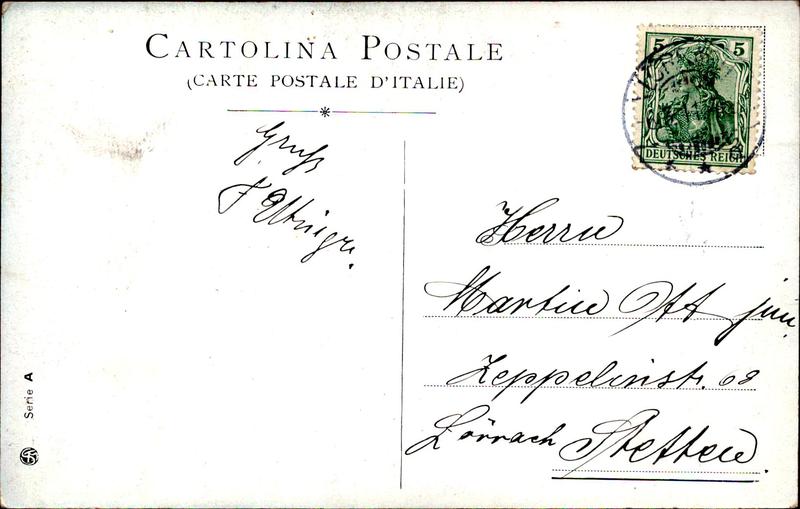 CARTOLINA POSTALE
(CARTE POSTALE D'ITALIE)
5 5
DEUTSCHES REICH
Gruss
F
Herrn
Martin Ott jun.
Zeppelinstr. 68
Lörrach Stetten.
Serie A